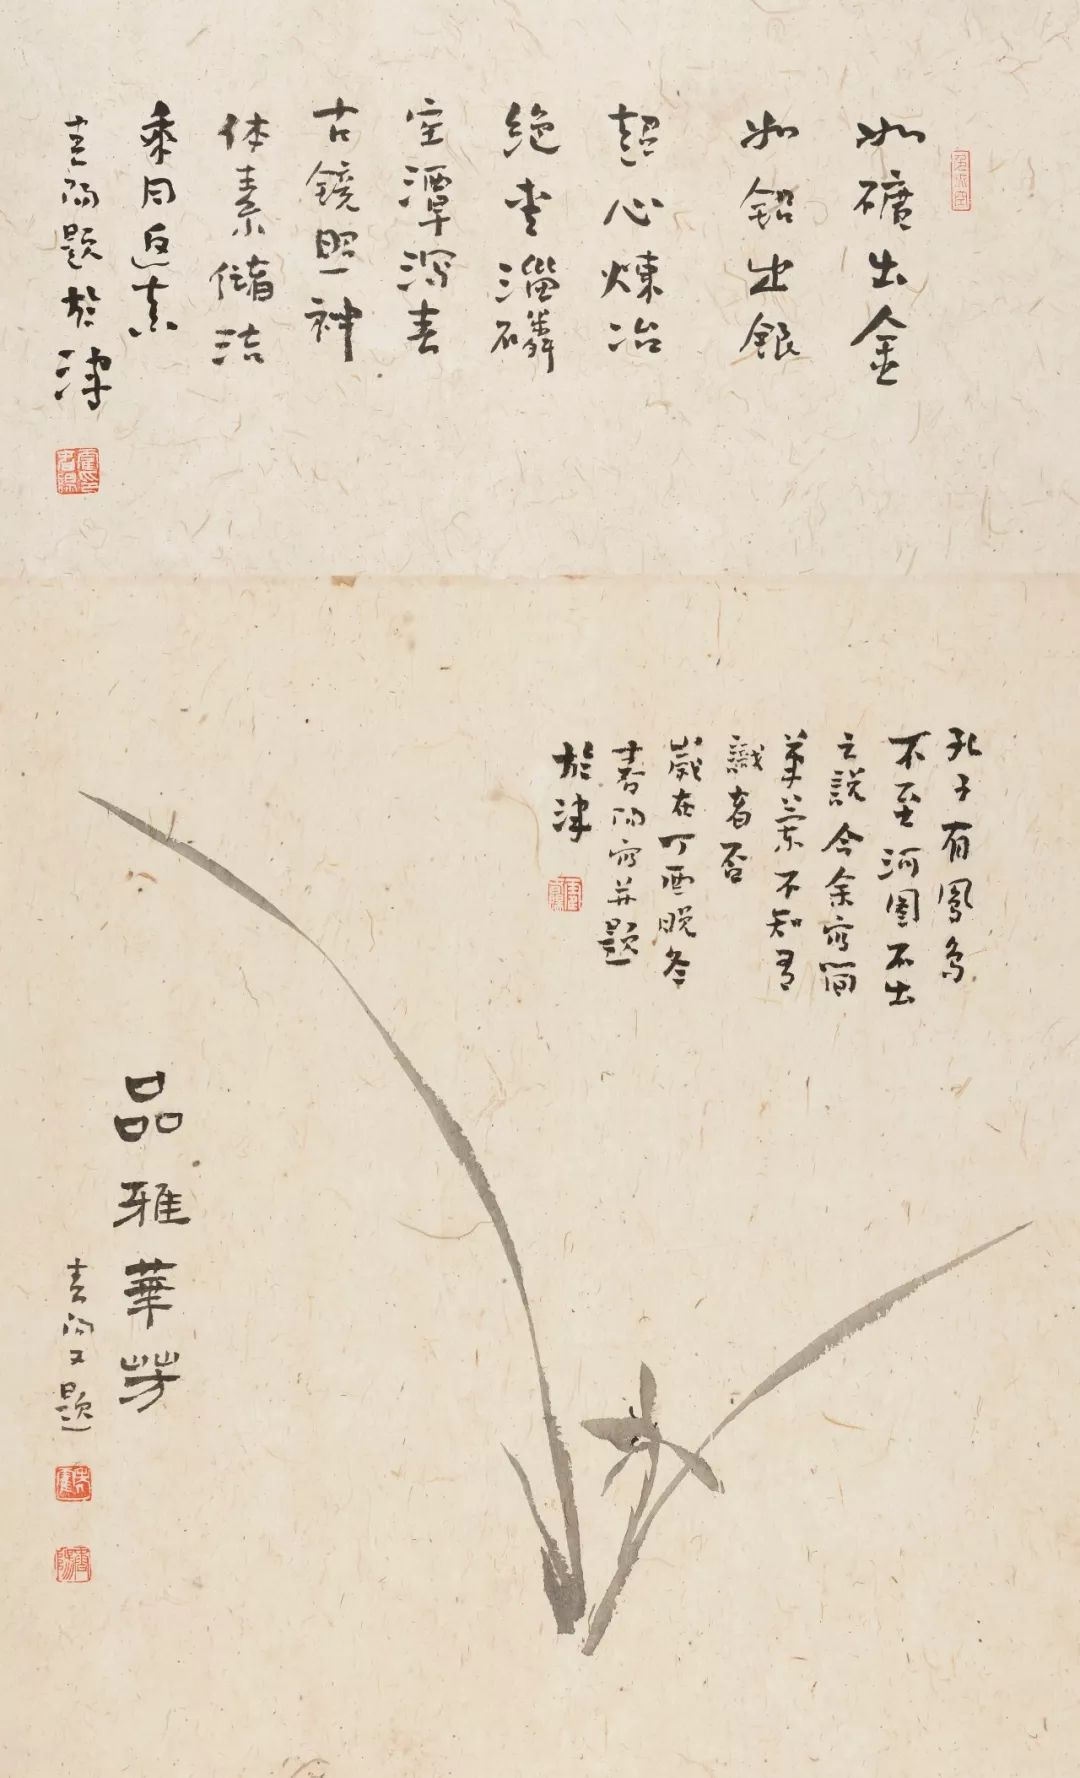 如礦出金
如鉛出銀
超心煉冶
絶爱淄磷
空潭泻春
古鏡照神
体素儲洁
乘月返真
春阳题於津
孔子有鳳鳥
不至河圖不出
之説今余寫简
筆蘭不知有
識者否
歲在丁酉晚冬
春阳寫并题
於津
品雅華芳
春阳又题